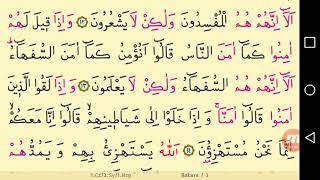 اَلَٓا اِنَّهُمْ هُمُ الْمُفْسِدُونَ وَلٰكِنْ لَا يَشْعُرُونَ ﴿١٢﴾ وَاِذَا ق۪يلَ لَهُمْ
اٰمِنُوا كَمَٓا اٰمَنَ النَّاسُ قَالُٓوا اَنُؤْمِنُ كَمَٓا اٰمَنَ السُّفَهَٓاءُۜ
اَلَٓا اِنَّهُمْ هُمُ السُّفَهَٓاءُ وَلٰكِنْ لَا يَعْلَمُونَ ﴿١٣﴾ وَاِذَا لَقُوا الَّذ۪ينَ
اٰمَنُوا قَالُٓوا اٰمَنَّاۚ وَاِذَا خَلَوْا اِلٰى شَيَاط۪ينِهِمْۙ قَالُٓوا اِنَّا مَعَكُمْۙ
اِنَّمَا نَحْنُ مُسْتَهْزِؤُ۫نَ ﴿١٤﴾ اَللّٰهُ يَسْتَهْزِئُ بِهِمْ وَيَمُدُّهُمْ
1.Cz/2.Sy/1.Hzp Bakara / 2